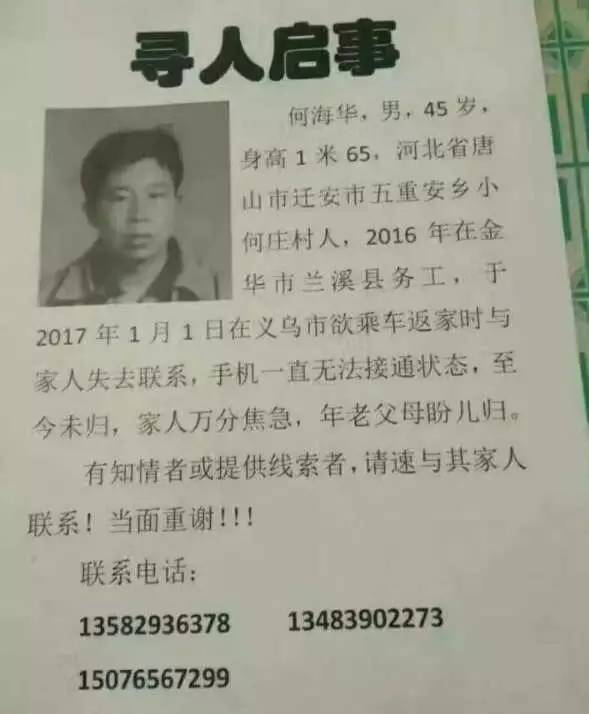 寻人启事
何海华，男，45 岁，
身高 1 米 65，河北省唐
山市迁安市五重安乡小
何庄村人，2016 年在金
华市兰溪县务工，于
2017 年 1 月 1 日在义乌市欲乘车返家时与
家人失去联系，手机一直无法接通状态，至
今未归，家人万分焦急，年老父母盼儿归。
有知情者或提供线索者，请速与其家人
联系！当面重谢!!!
联系电话：
13582936378 13483902273
15076567299